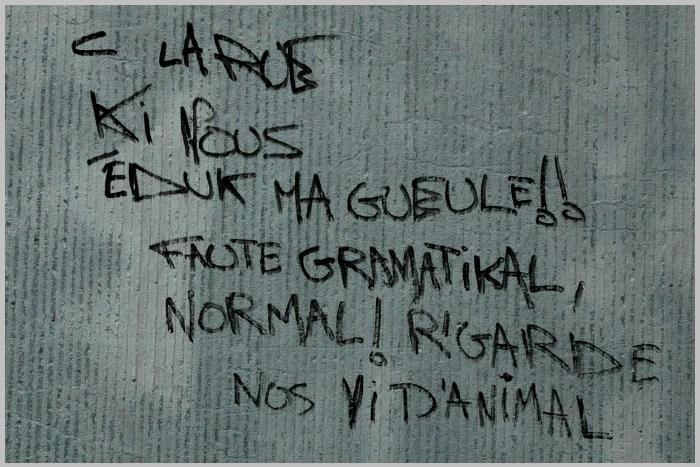 C LA RUE
Ki NOUS
ÉDUK MA GUEULE!!
FAUTE GRAMATiKAL,
NORMAL! R'GARDE
NOS Vi D'ANiMAL